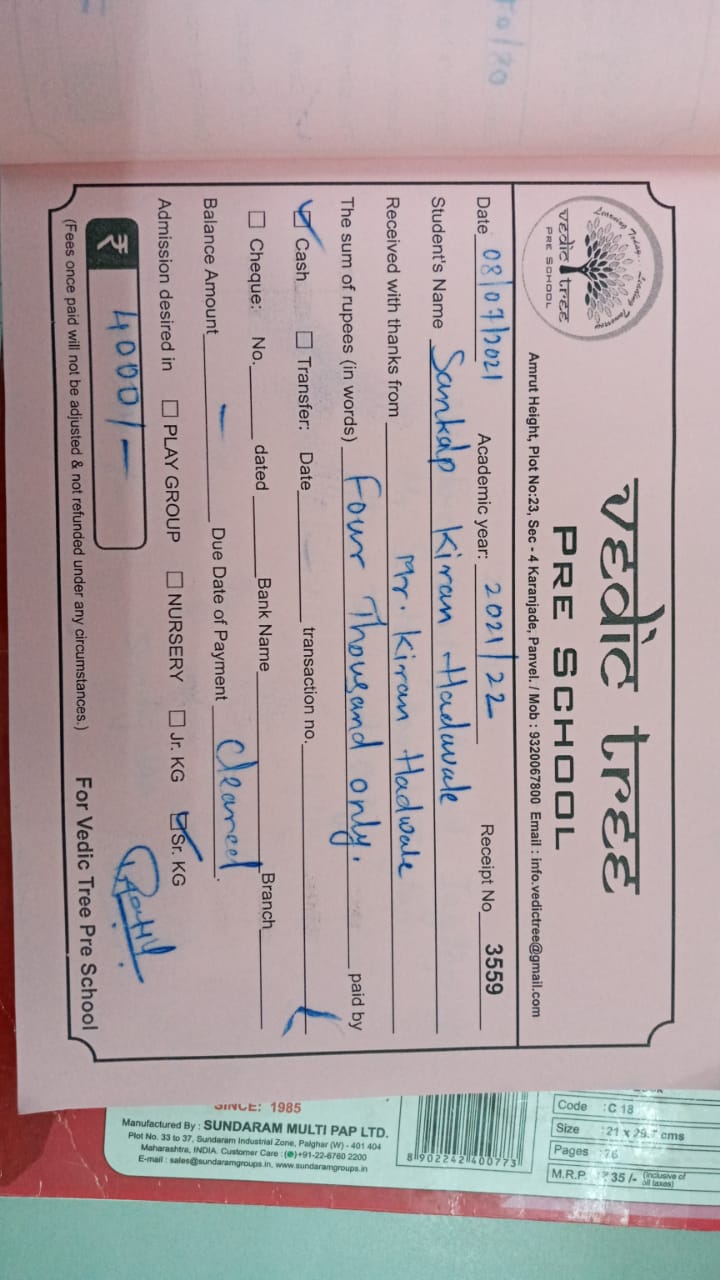 Learning Today... Leading Tomorrow
vedic tree
PRE SCHOOL
vedic tree
PRE SCHOOL
Amrut Height, Plot No:23, Sec - 4 Karanjade, Panvel. / Mob : 9320067800 Email : info.vedictree@gmail.com
Date 08/07/2021 Academic year: 2021/22 Receipt No 3559
Student's Name Sankalp Kiran Hadawale
Received with thanks from Mr. Kiran Hadwale
The sum of rupees (in words) Four Thousand only. paid by
☑ Cash ☐ Transfer: Date transaction no.
☐ Cheque: No. dated Bank Name Branch
Balance Amount — Due Date of Payment Cleared.
Admission desired in ☐ PLAY GROUP ☐ NURSERY ☐ Jr. KG ☑ Sr. KG
₹ 4000/-
(Fees once paid will not be adjusted & not refunded under any circumstances.) For Vedic Tree Pre School
SINCE: 1985
Manufactured By : SUNDARAM MULTI PAP LTD.
Plot No. 33 to 37, Sundaram Industrial Zone, Palghar (W) - 401 404
Maharashtra, INDIA. Customer Care : +91-22-6760 2200
E-mail : sales@sundaramgroups.in, www.sundaramgroups.in
8 902242 400773
Code : C 18
Size : 21 x 29.7 cms
Pages : 76
M.R.P. ₹ 35 /- (Inclusive of all taxes)